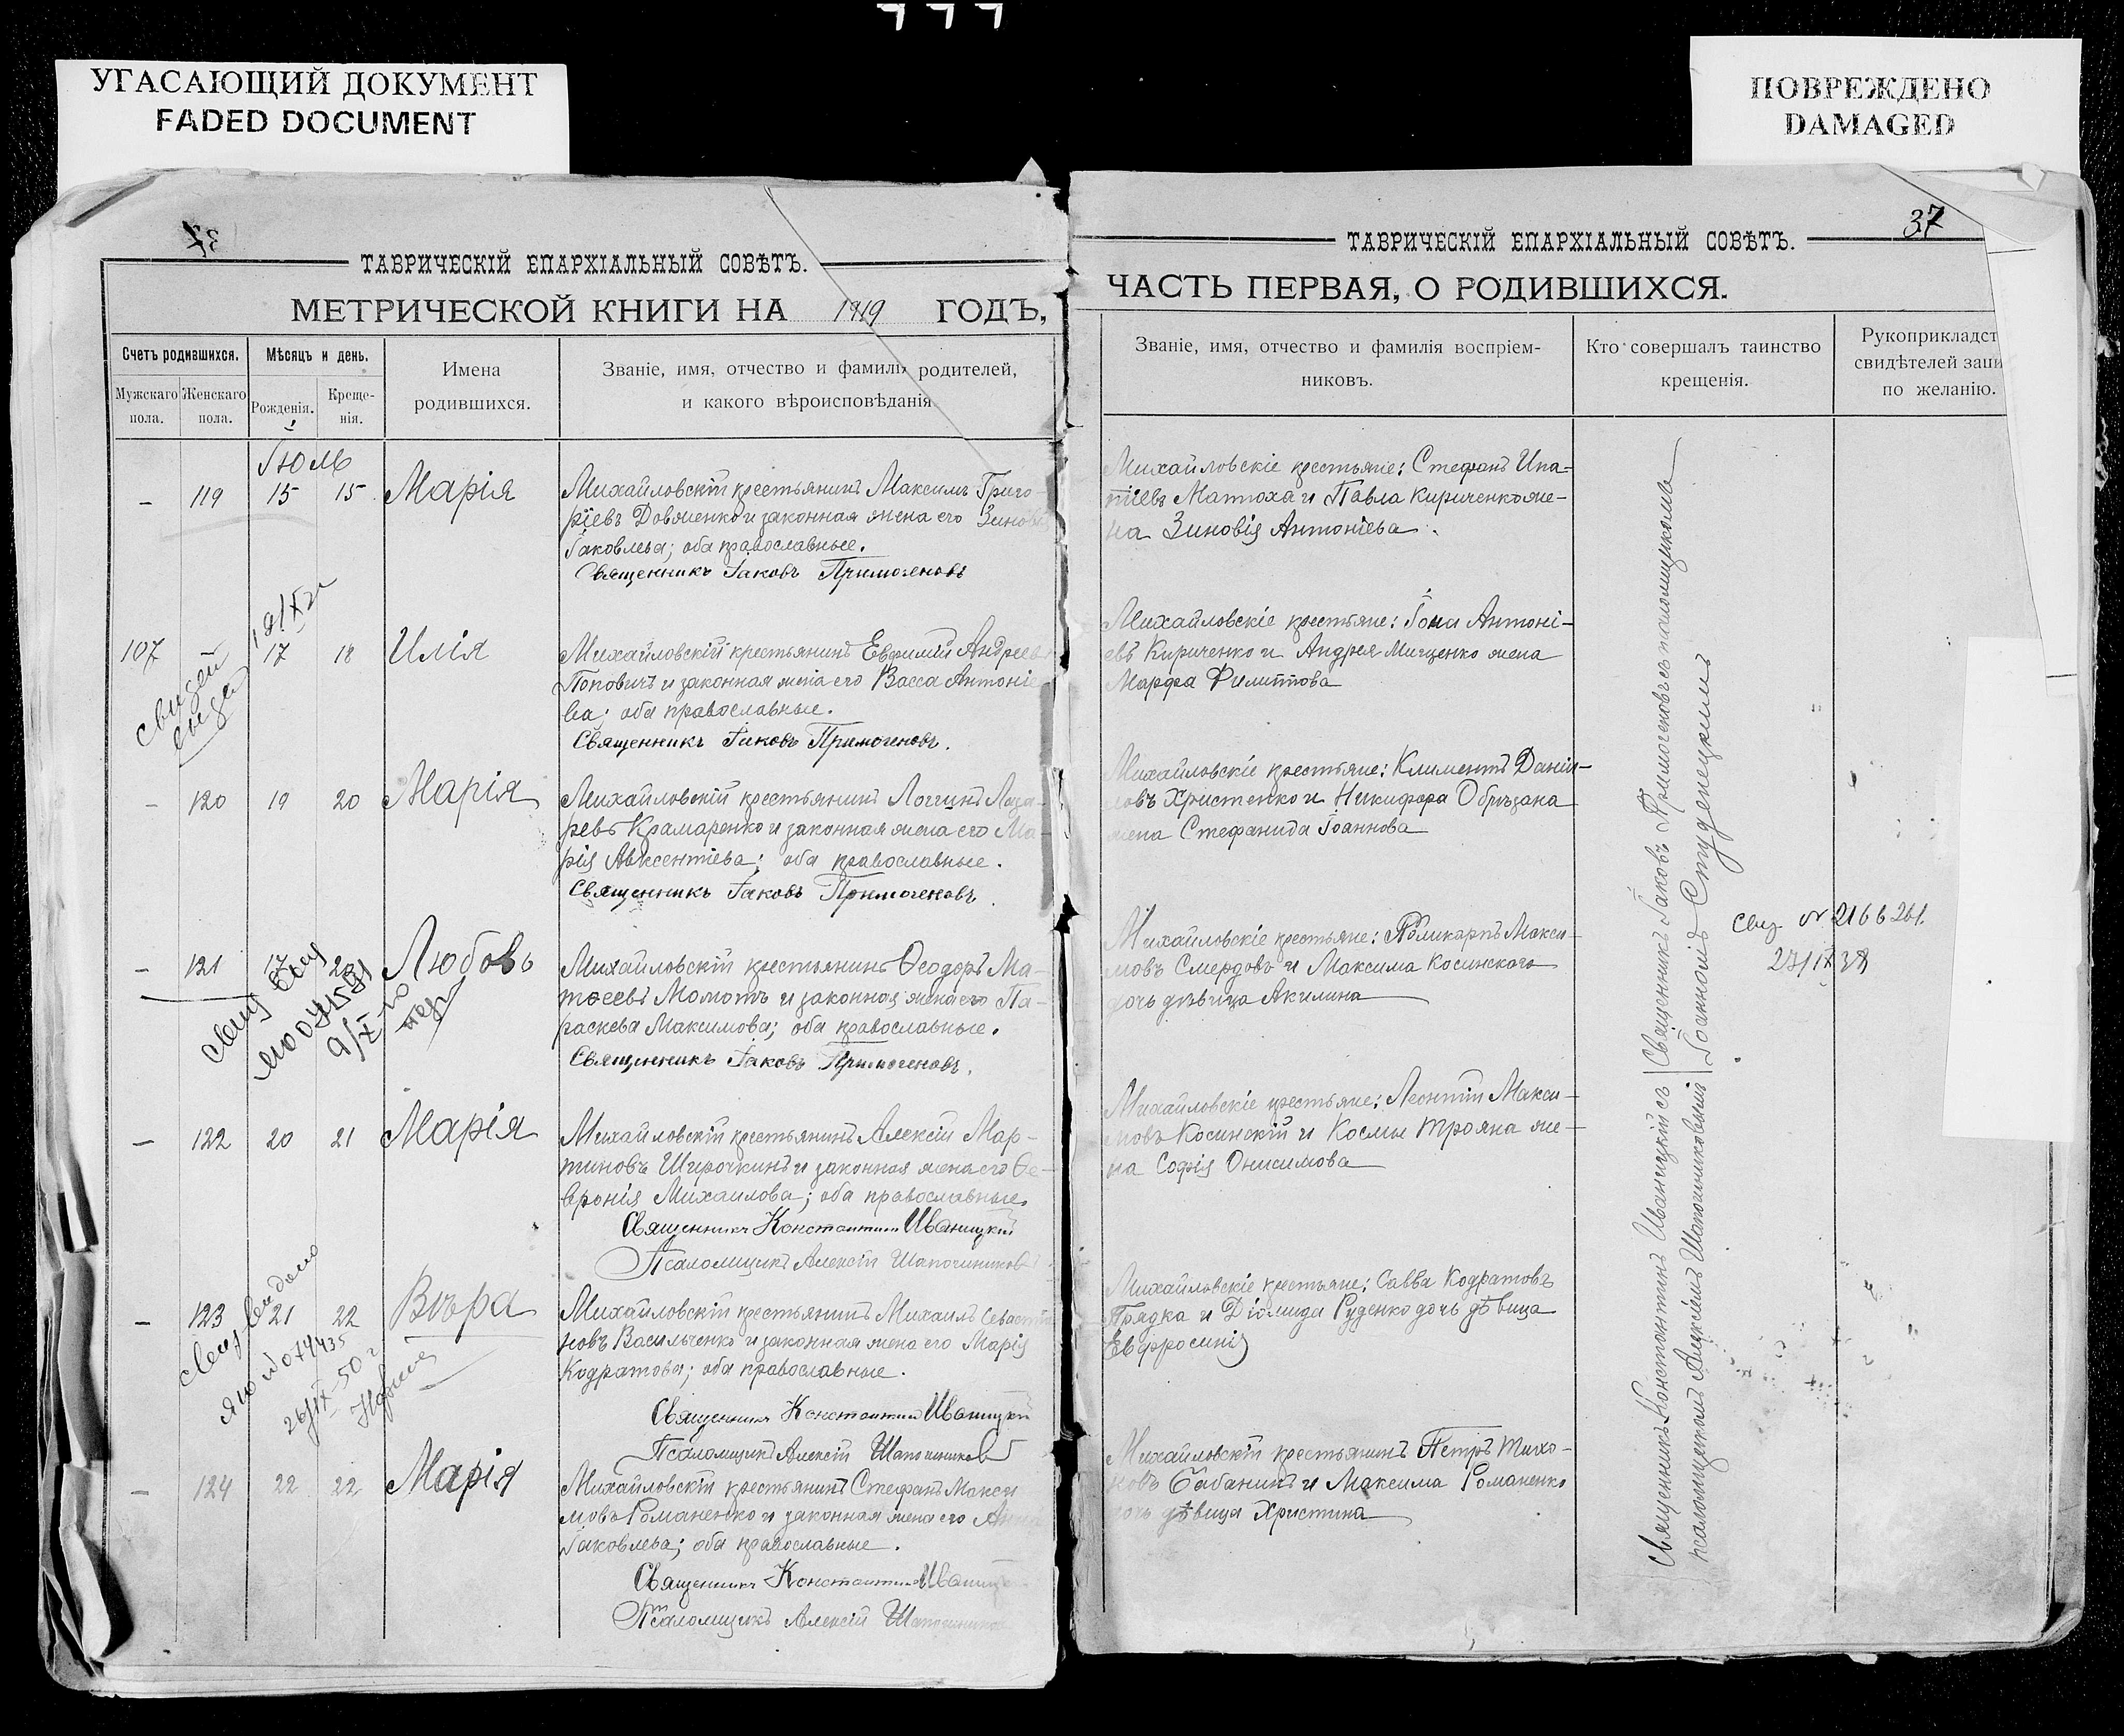 УГАСАЮЩИЙ ДОКУМЕНТ
FADED DOCUMENT
ПОВРЕЖДЕНО
DAMAGED
ТАВРИЧЕСКІЙ ЕПАРХІАЛЬНЫЙ СОВѢТЪ.
МЕТРИЧЕСКОЙ КНИГИ НА 1919 ГОДЪ,
Счетъ родившихся.
Мѣсяцъ и день.
Мужскаго пола.
Женскаго пола.
Рожденія.
Креще-
нія.
Имена
родившихся.
Званіе, имя, отчество и фамилія родителей,
и какого вѣроисповѣданія
Іюль
– 119 15 15 Марія
Михайловскій крестьянинъ Максимъ Григо-
ріевъ Довженко и законная жена его Зиновія
Іаковлева; оба православные.
Священникъ Іаковъ Примогеновъ
107 17 18 Илія
Михайловскій крестьянинъ Евфимій Андреевъ
Поповичъ и законная жена его Васса Антоніе-
ва; оба православные.
Священникъ Іаковъ Примогеновъ.
– 120 19 20 Марія
Михайловскій крестьянинъ Логгинъ Лаза-
ревъ Крамаренко и законная жена его Ма-
рія Авксентіева; оба православные.
Священникъ Іаковъ Примогеновъ.
– 121 17 20 Любовь
Михайловскій крестьянинъ Ѳеодоръ Ма-
тѳеевъ Момотъ и законная жена его Па-
раскева Максимова; оба православные.
Священникъ Іаковъ Примогеновъ.
– 122 20 21 Марія
Михайловскій крестьянинъ Алексій Мар-
тиновъ Широчкинъ и законная жена его Ѳе-
вронія Михаилова; оба православные.
Священникъ Константинъ Иваницкій
Псаломщикъ Алексій Шапочниковъ
– 123 21 22 Вѣра
Михайловскій крестьянинъ Михаилъ Севастія-
новъ Васильченко и законная жена его Марія
Кодратова; оба православные.
26/IX-50 г
Священникъ Константинъ Иваницкій
Псаломщикъ Алексій Шапочниковъ
– 124 22 22 Марія
Михайловскій крестьянинъ Стефанъ Макси-
мовъ Романенко и законная жена его Анна
Іаковлева; оба православные.
Священникъ Константинъ Иваницкій
Псаломщикъ Алексій Шапочниковъ
37
ТАВРИЧЕСКІЙ ЕПАРХІАЛЬНЫЙ СОВѢТЪ.
ЧАСТЬ ПЕРВАЯ, О РОДИВШИХСЯ.
Званіе, имя, отчество и фамилія воспріем-
никовъ.
Кто совершалъ таинство
крещенія.
Рукоприкладст
свидѣтелей запи
по желанію.
Михайловскіе крестьяне: Стефанъ Ипа-
тіевъ Матюха и Павла Кириченко же-
на Зиновія Антоніева.
Михайловскіе крестьяне: Іона Антоні-
евъ Кириченко и Андрея Мищенко жена
Марфа Филиппова
Михайловскіе крестьяне: Климентъ Даніи-
ловъ Христенко и Никифора Обрѣзана
жена Стефанида Іоаннова
Михайловскіе крестьяне: Поликарпъ Макси-
мовъ Смердовъ и Максима Косинскаго
дочь дѣвица Акилина
Михайловскіе крестьяне: Леонтій Макси-
мовъ Косинскій и Космы Трояна же-
на Софія Онисимова
Михайловскіе крестьяне: Савва Кодратовъ
Прядка и Діомида Руденко дочь дѣвица
Евфросинія
Михайловскій крестьянинъ Петръ Тихо-
новъ Бабанинъ и Максима Романенко
дочь дѣвица Христина
Священникъ Константинъ Иваницкій съ
псаломщикомъ Алексіемъ Шапочниковымъ
Священникъ Іаковъ Примогеновъ съ псаломщикомъ
Іоанномъ Студенецкимъ